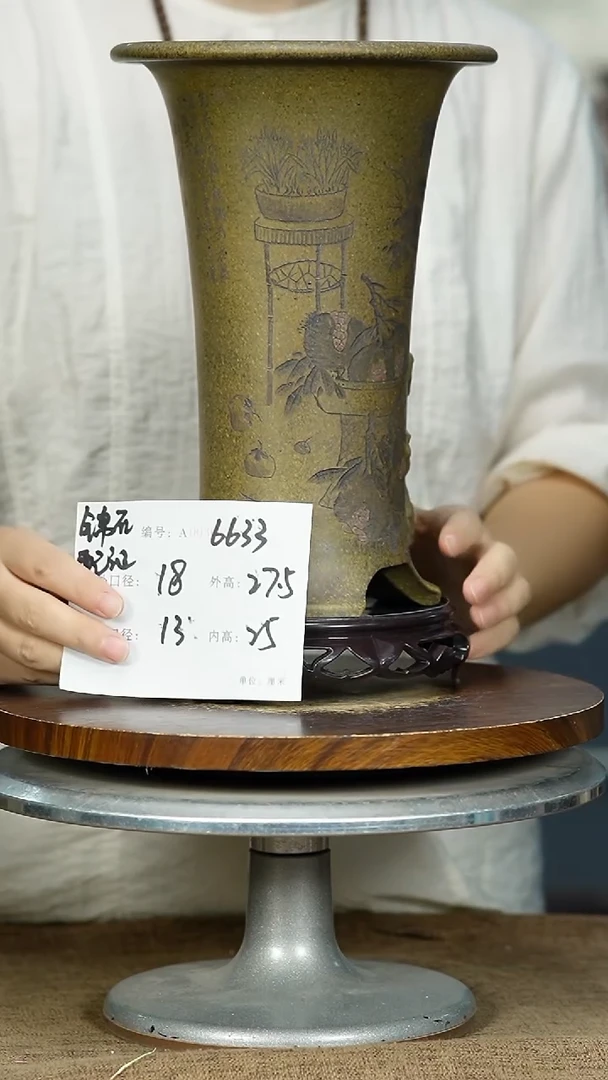 锦石 编号：A 6633
配证
口径： 18 外高： 27.5
径： 13 内高： 25
单位：厘米